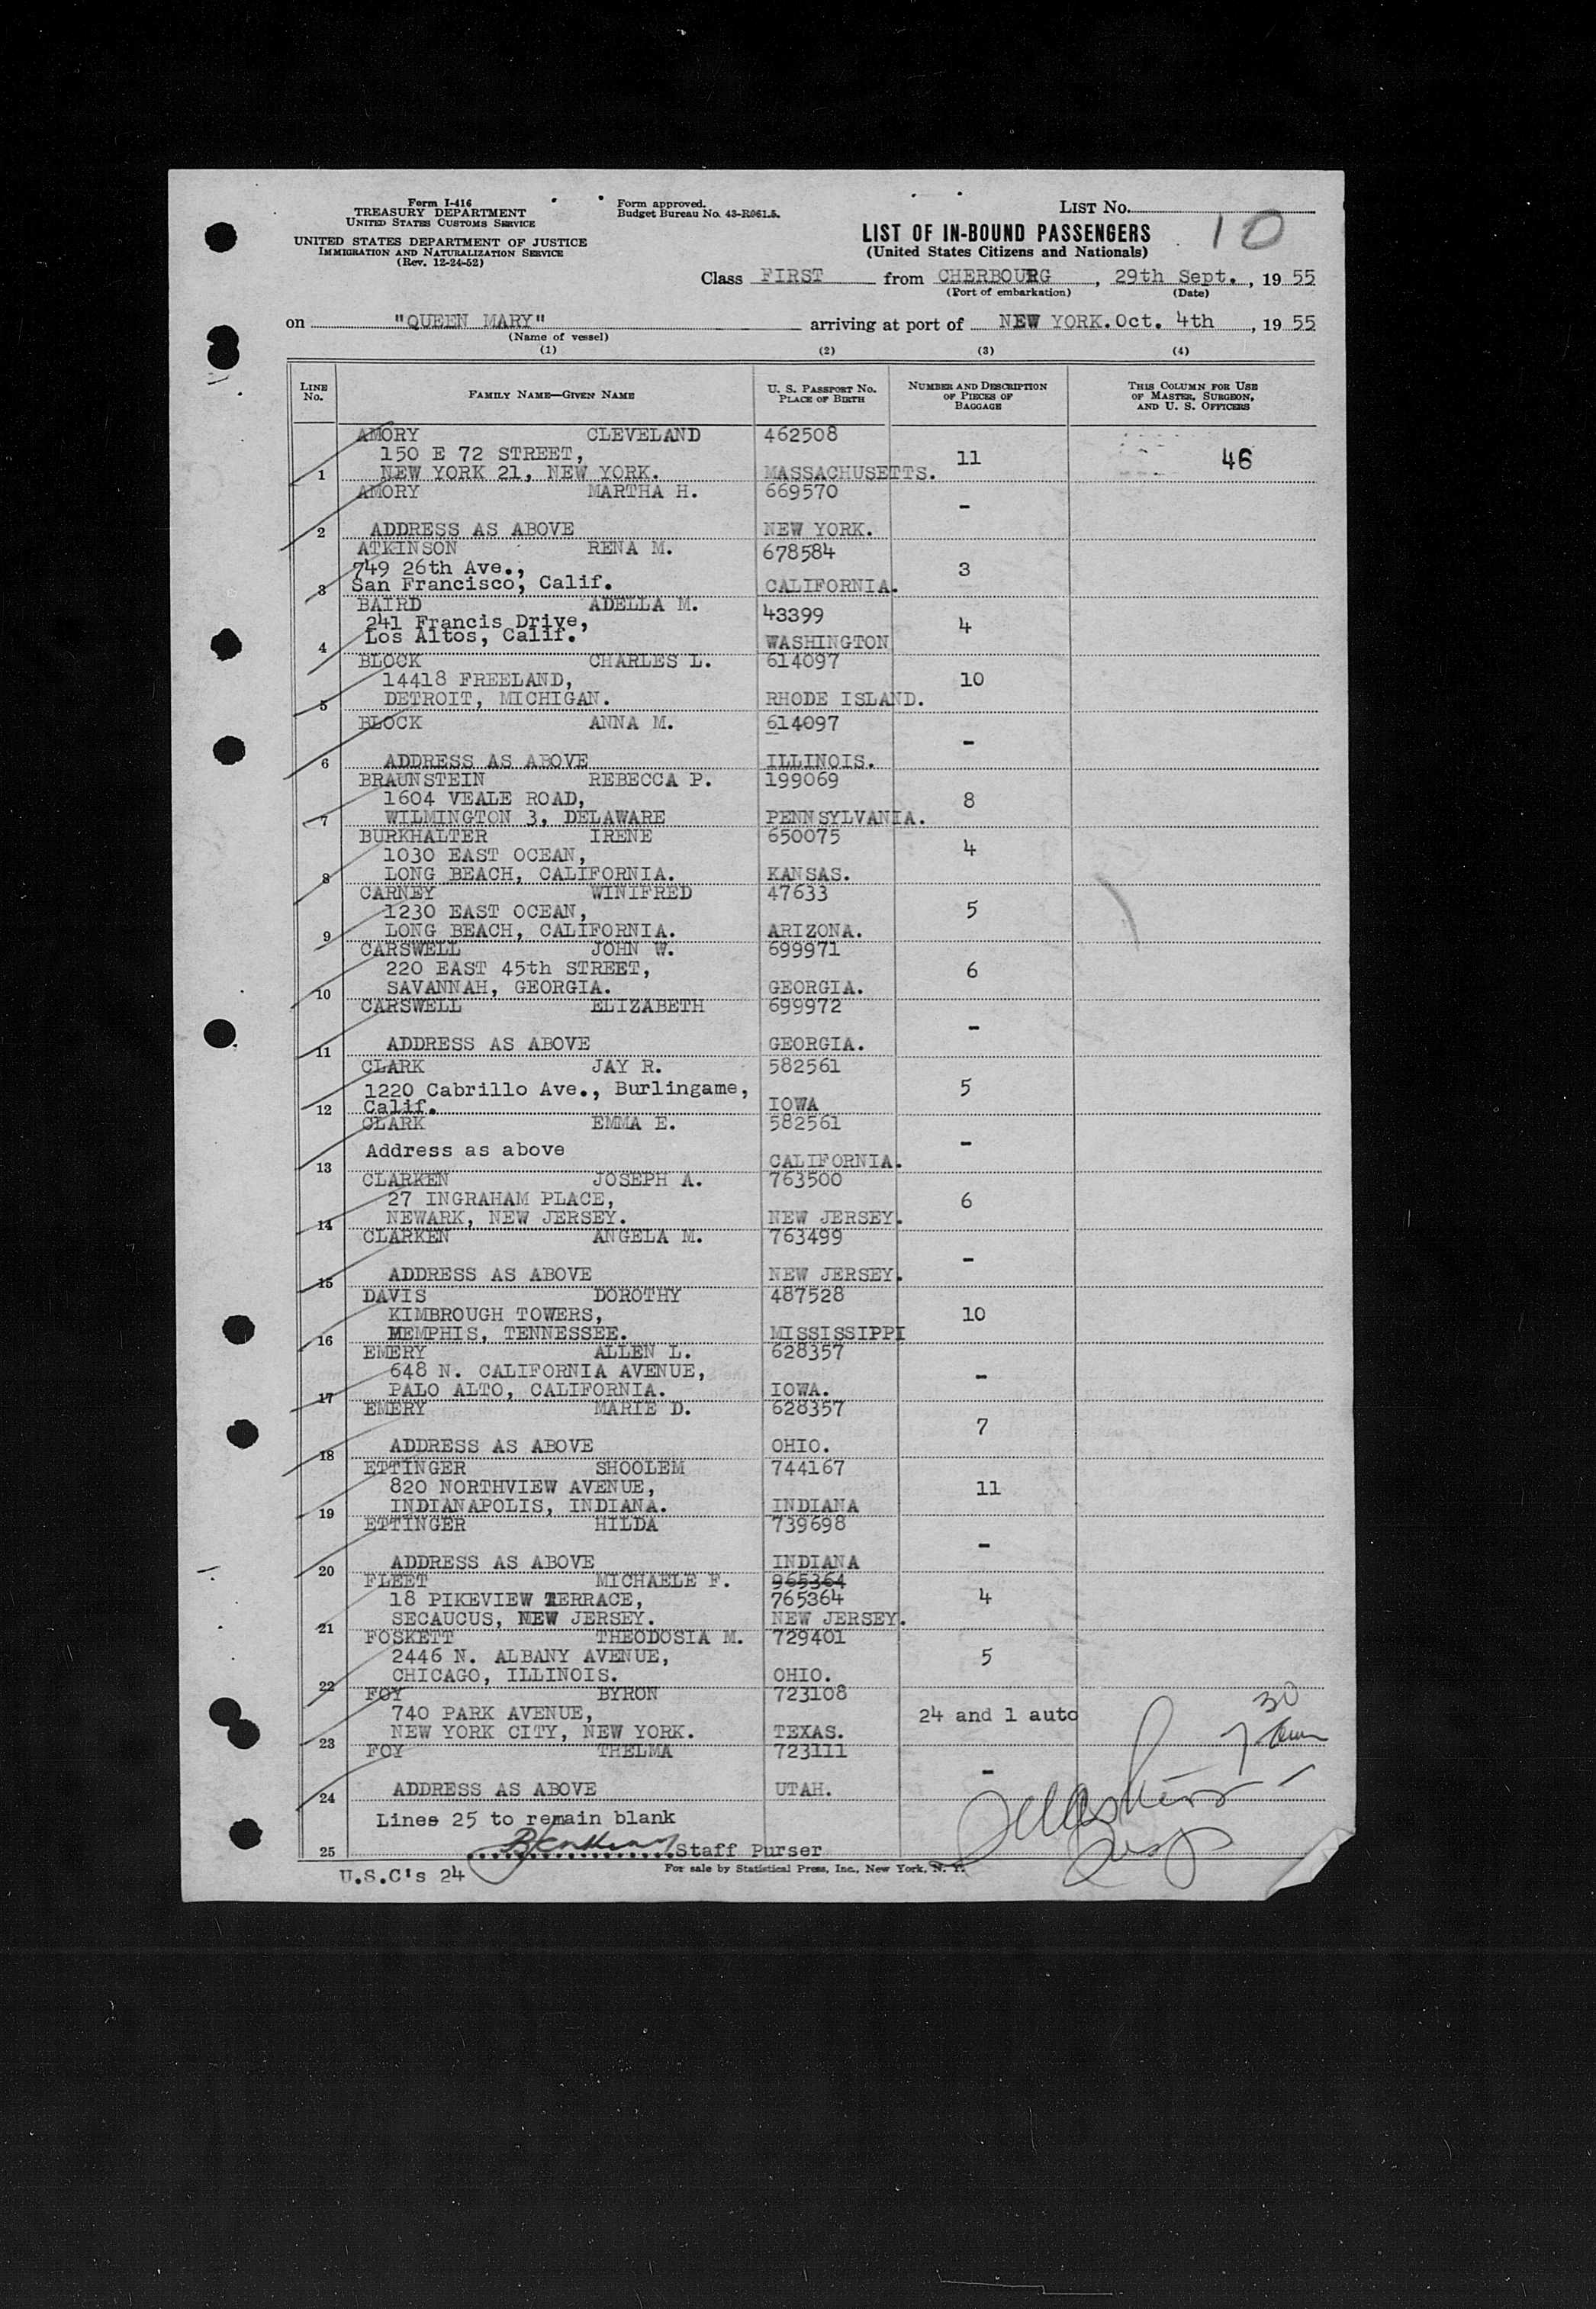 Form I-416
TREASURY DEPARTMENT
UNITED STATES CUSTOMS SERVICE
UNITED STATES DEPARTMENT OF JUSTICE
IMMIGRATION AND NATURALIZATION SERVICE
(Rev. 12-24-52)
Form approved.
Budget Bureau No. 43-R061.5.
LIST No. 10
LIST OF IN-BOUND PASSENGERS
(United States Citizens and Nationals)
Class FIRST from CHERBOURG, 29th Sept., 19 55
(Port of embarkation) (Date)
on "QUEEN MARY" arriving at port of NEW YORK. Oct. 4th, 19 55
(Name of vessel)
(1) (2) (3) (4)
LINE No. FAMILY NAME—GIVEN NAME U. S. PASSPORT No. PLACE OF BIRTH NUMBER AND DESCRIPTION OF PIECES OF BAGGAGE THIS COLUMN FOR USE OF MASTER, SURGEON, AND U. S. OFFICERS
AMORY CLEVELAND 462508
150 E 72 STREET, 11 46
1 NEW YORK 21, NEW YORK. MASSACHUSETTS.
AMORY MARTHA H. 669570
-
2 ADDRESS AS ABOVE NEW YORK.
ATKINSON RENA M. 678584
749 26th Ave., 3
3 San Francisco, Calif. CALIFORNIA.
BAIRD ADELLA M. 43399
241 Francis Drive, 4
4 Los Altos, Calif. WASHINGTON
BLOCK CHARLES L. 614097
14418 FREELAND, 10
5 DETROIT, MICHIGAN. RHODE ISLAND.
BLOCK ANNA M. 614097
-
6 ADDRESS AS ABOVE ILLINOIS.
BRAUNSTEIN REBECCA P. 199069
1604 VEALE ROAD, 8
7 WILMINGTON 3, DELAWARE PENNSYLVANIA.
BURKHALTER IRENE 650075
1030 EAST OCEAN, 4
8 LONG BEACH, CALIFORNIA. KANSAS.
CARNEY WINIFRED 47633
1230 EAST OCEAN, 5
9 LONG BEACH, CALIFORNIA. ARIZONA.
CARSWELL JOHN W. 699971
220 EAST 45th STREET, 6
10 SAVANNAH, GEORGIA. GEORGIA.
CARSWELL ELIZABETH 699972
-
11 ADDRESS AS ABOVE GEORGIA.
CLARK JAY R. 582561
1220 Cabrillo Ave., Burlingame, 5
12 Calif. IOWA
CLARK EMMA E. 582561
Address as above -
13 CALIFORNIA.
CLARKEN JOSEPH A. 763500
27 INGRAHAM PLACE, 6
14 NEWARK, NEW JERSEY. NEW JERSEY.
CLARKEN ANGELA M. 763499
-
15 ADDRESS AS ABOVE NEW JERSEY.
DAVIS DOROTHY 487528
KIMBROUGH TOWERS, 10
16 MEMPHIS, TENNESSEE. MISSISSIPPI
EMERY ALLEN L. 628357
648 N. CALIFORNIA AVENUE, -
17 PALO ALTO, CALIFORNIA. IOWA.
EMERY MARIE D. 628357
7
18 ADDRESS AS ABOVE OHIO.
ETTINGER SHOOLEM 744167
820 NORTHVIEW AVENUE, 11
19 INDIANAPOLIS, INDIANA. INDIANA
ETTINGER HILDA 739698
-
20 ADDRESS AS ABOVE INDIANA
FLEET MICHAELE F. 965364
18 PIKEVIEW TERRACE, 765364 4
21 SECAUCUS, NEW JERSEY. NEW JERSEY.
FOSKETT THEODOSIA M. 729401
2446 N. ALBANY AVENUE, 5
22 CHICAGO, ILLINOIS. OHIO.
FOY BYRON 723108
740 PARK AVENUE, 24 and 1 auto 30
23 NEW YORK CITY, NEW YORK. TEXAS.
FOY THELMA 723111
-
24 ADDRESS AS ABOVE UTAH.
Lines 25 to remain blank
25 Staff Purser
U.S.C's 24
For sale by Statistical Press, Inc., New York, N. Y.